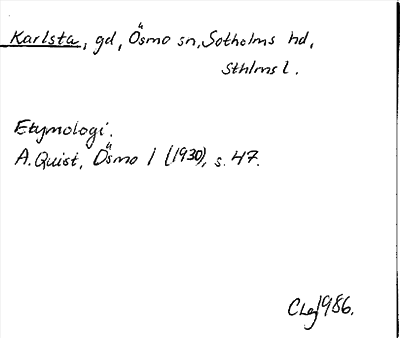 Karlsta, gd, Ösmo sn, Sotholms hd,
Sthlms l.
Etymologi.
A. Quist, Ösmo 1 (1930), s. 47.
CLej 1986.